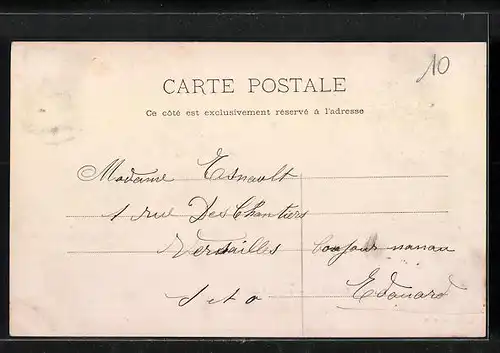 10
CARTE POSTALE
Ce côté est exclusivement réservé à l'adresse
Madame Esnault
1 rue Des Chantiers
Versailles
S et O
bonjour nanan
Edouard